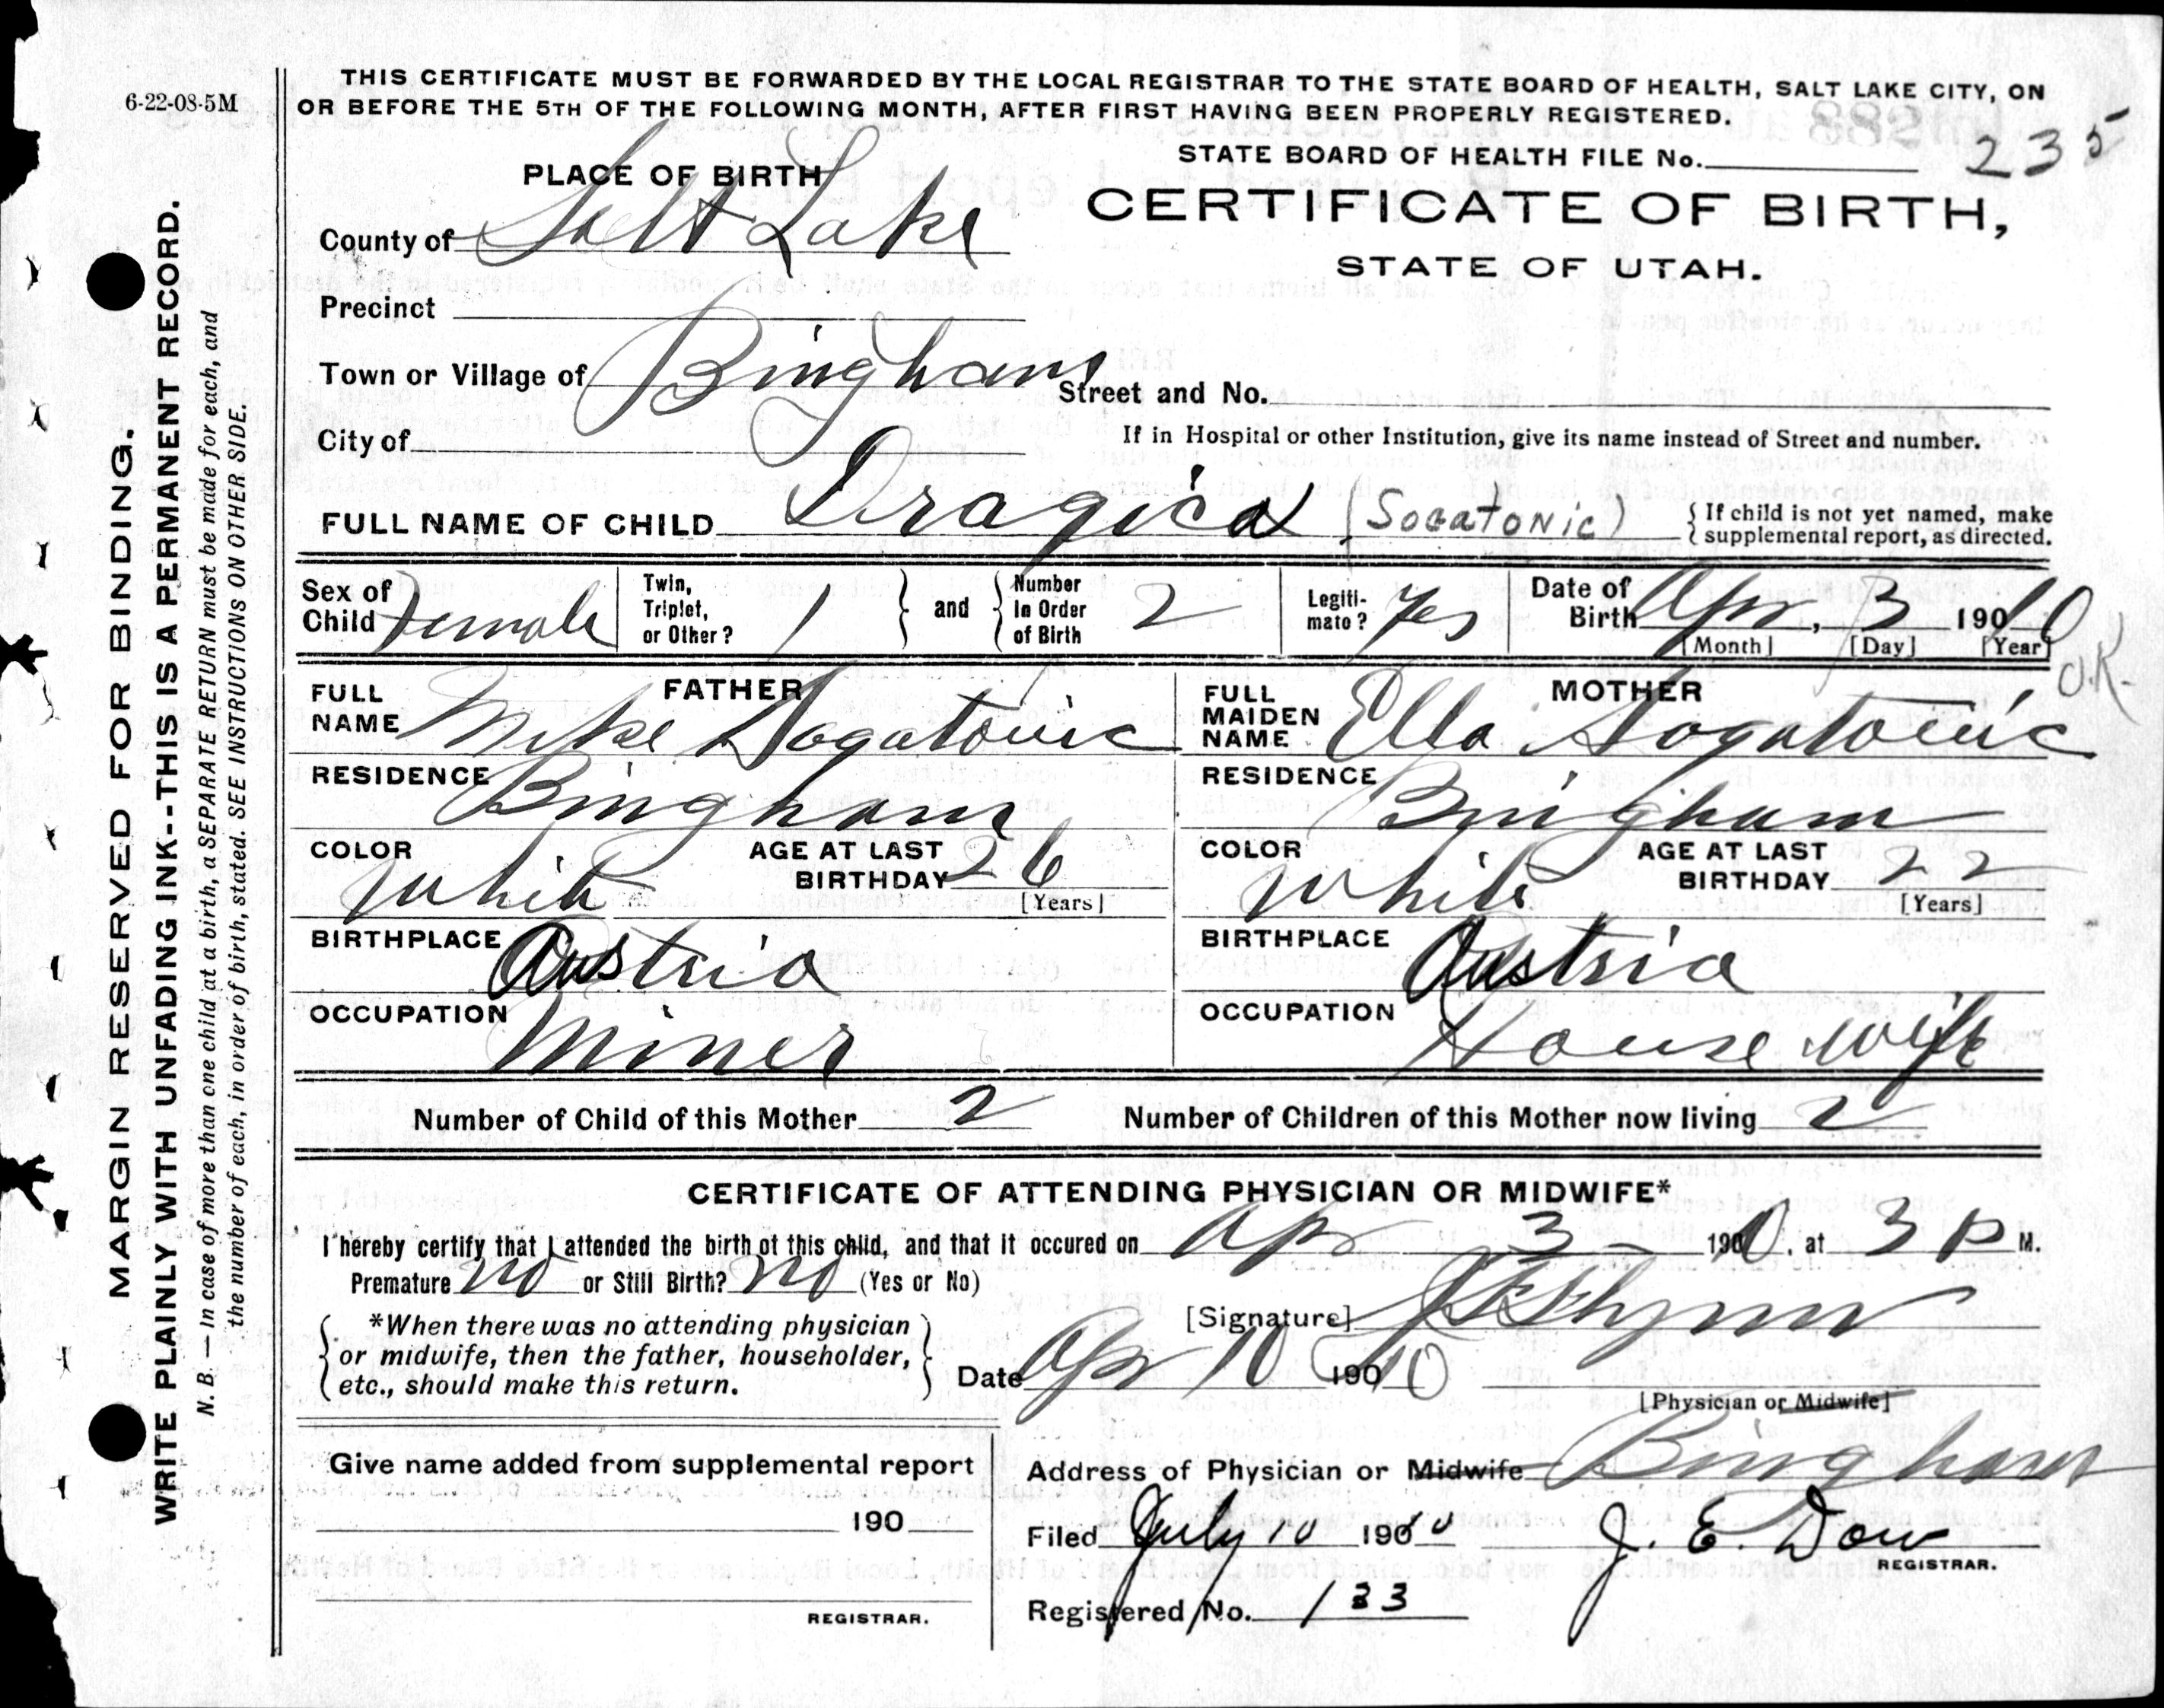 6-22-08-5M
THIS CERTIFICATE MUST BE FORWARDED BY THE LOCAL REGISTRAR TO THE STATE BOARD OF HEALTH, SALT LAKE CITY, ON
OR BEFORE THE 5TH OF THE FOLLOWING MONTH, AFTER FIRST HAVING BEEN PROPERLY REGISTERED.
STATE BOARD OF HEALTH FILE No. 235
PLACE OF BIRTH
CERTIFICATE OF BIRTH,
STATE OF UTAH.
County of Salt Lake
Precinct
Town or Village of Bingham
Street and No.
City of
If in Hospital or other Institution, give its name instead of Street and number.
FULL NAME OF CHILD Dragica (Sogatonic)
{ If child is not yet named, make
supplemental report, as directed.
Sex of Child Female
Twin, Triplet, or Other? 1 } and { Number In Order of Birth 2
Legitimate? Yes
Date of Birth Apr, 3 1910
[Month] [Day] [Year]
O.K.
FATHER
FULL NAME Mike Sogatovic
RESIDENCE Bingham
COLOR White
AGE AT LAST BIRTHDAY 26
[Years]
BIRTHPLACE Austria
OCCUPATION Miner
MOTHER
FULL MAIDEN NAME Ella Sogatovic
RESIDENCE Bingham
COLOR White
AGE AT LAST BIRTHDAY 22
[Years]
BIRTHPLACE Austria
OCCUPATION House wife
Number of Child of this Mother 2 Number of Children of this Mother now living 2
CERTIFICATE OF ATTENDING PHYSICIAN OR MIDWIFE*
I hereby certify that I attended the birth of this child, and that it occured on Apr 3 1910, at 3 P M.
Premature no or Still Birth? no (Yes or No)
[Signature] Flynn
*When there was no attending physician
or midwife, then the father, householder,
etc., should make this return.
Date Apr 10 1910
[Physician or Midwife]
Give name added from supplemental report
190
REGISTRAR.
Address of Physician or Midwife Bingham
Filed July 10 1910 J. E. Dow
REGISTRAR.
Registered No. 133
MARGIN RESERVED FOR BINDING.
WRITE PLAINLY WITH UNFADING INK--THIS IS A PERMANENT RECORD.
N. B. — In case of more than one child at a birth, a SEPARATE RETURN must be made for each, and
the number of each, in order of birth, stated. SEE INSTRUCTIONS ON OTHER SIDE.